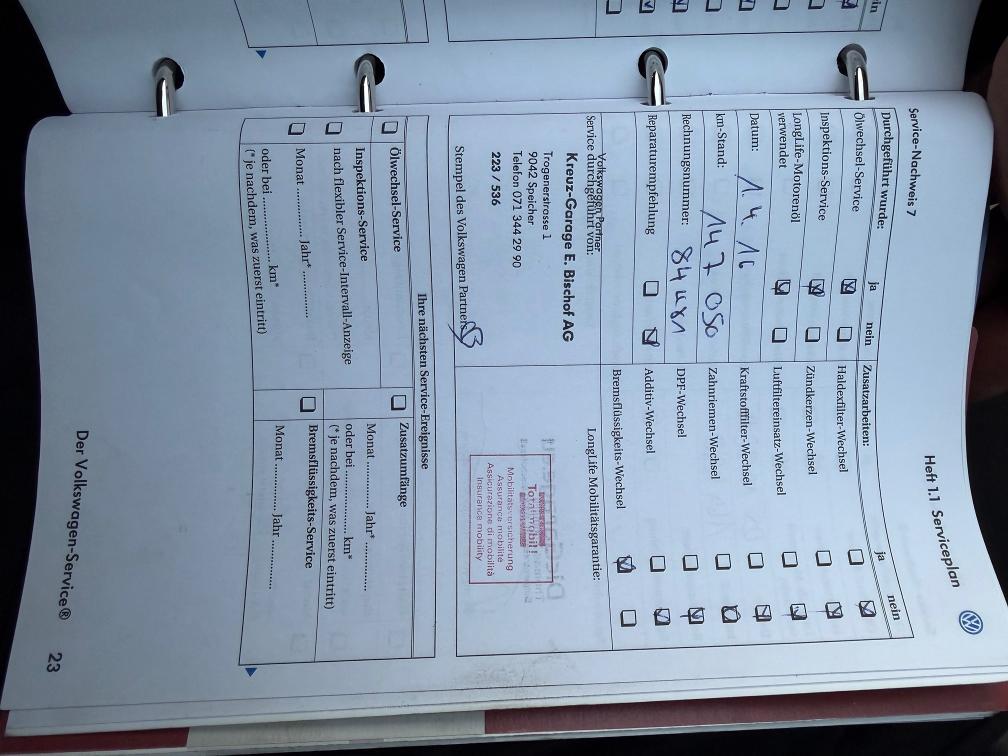 Heft 1.1 Serviceplan
Service-Nachweis 7
Durchgeführt wurde: ja nein
Ölwechsel-Service
Inspektions-Service
LongLife-Motorenöl
verwendet
Datum: 1. 4. 16
km-Stand: 147 050
Rechnungsnummer:
Reparaturempfehlung
Zusatzarbeiten: ja nein
Haldexfilter-Wechsel
Zündkerzen-Wechsel
Luftfiltereinsatz-Wechsel
Kraftstofffilter-Wechsel
Zahnriemen-Wechsel
DPF-Wechsel
Additiv-Wechsel
Bremsflüssigkeits-Wechsel
Service durchgeführt von:
Volkswagen Partner
Kreuz-Garage E. Bischof AG
Trogenerstrasse 1
9042 Speicher
Telefon 071 344 29 90
223 / 536
Stempel des Volkswagen Partners
LongLife Mobilitätsgarantie:
Totalmobil!
Mobilitätsversicherung
Assurance mobilité
Assicurazione di mobilità
Insurance mobility
Ihre nächsten Service-Ereignisse
Ölwechsel-Service
Inspektions-Service
nach flexibler Service-Intervall-Anzeige
Monat ............ Jahr* ............
oder bei .................. km*
(* je nachdem, was zuerst eintritt)
Zusatzumfänge
Monat ............ Jahr* ............
oder bei .................. km*
(* je nachdem, was zuerst eintritt)
Bremsflüssigkeits-Service
Monat ............ Jahr ............
Der Volkswagen-Service®
23